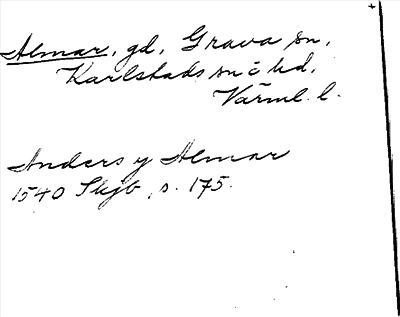 Almar, gd, Grava sn,
Karlstads sn o hd,
Värml. l.
Anders y Almar
1540 Skjb, s. 175.